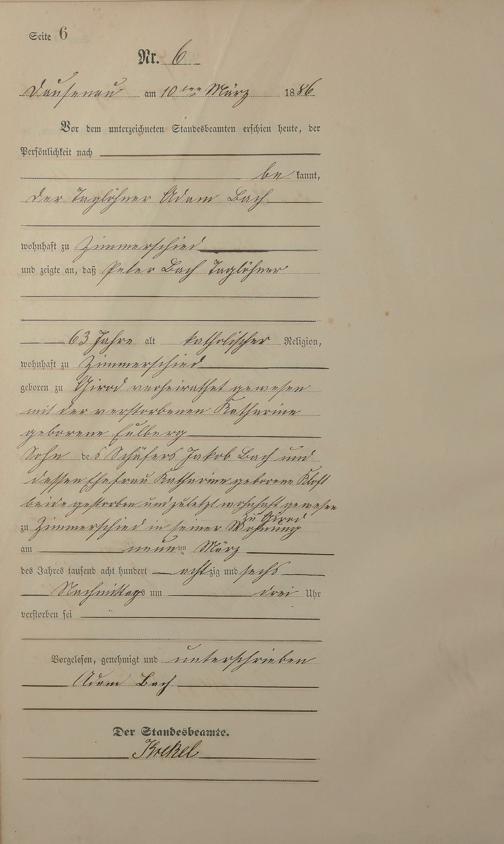 Seite 6
Nr. 6
Dausenau am 10ten März 1886
Vor dem unterzeichneten Standesbeamten erschien heute, der
Persönlichkeit nach
be kannt,
der Taglöhner Adam Bach
wohnhaft zu Zimmerschied
und zeigte an, daß Peter Bach Taglöhner
63 Jahre alt katholischer Religion,
wohnhaft zu Zimmerschied
geboren zu Girod verheirathet gewesen
mit der verstorbenen Katharine
geborene
Sohn des Schäfers Jakob Bach und
dessen Ehefrau Katharine geborene
beide gestorben und zuletzt wohnhaft gewesen
zu Girod
zu Zimmerschied in seiner Wohnung
am neunten März
des Jahres tausend acht hundert achtzig und sechs
Nachmittags um drei Uhr
verstorben sei
Vorgelesen, genehmigt und unterschrieben
Adam Bach
Der Standesbeamte.